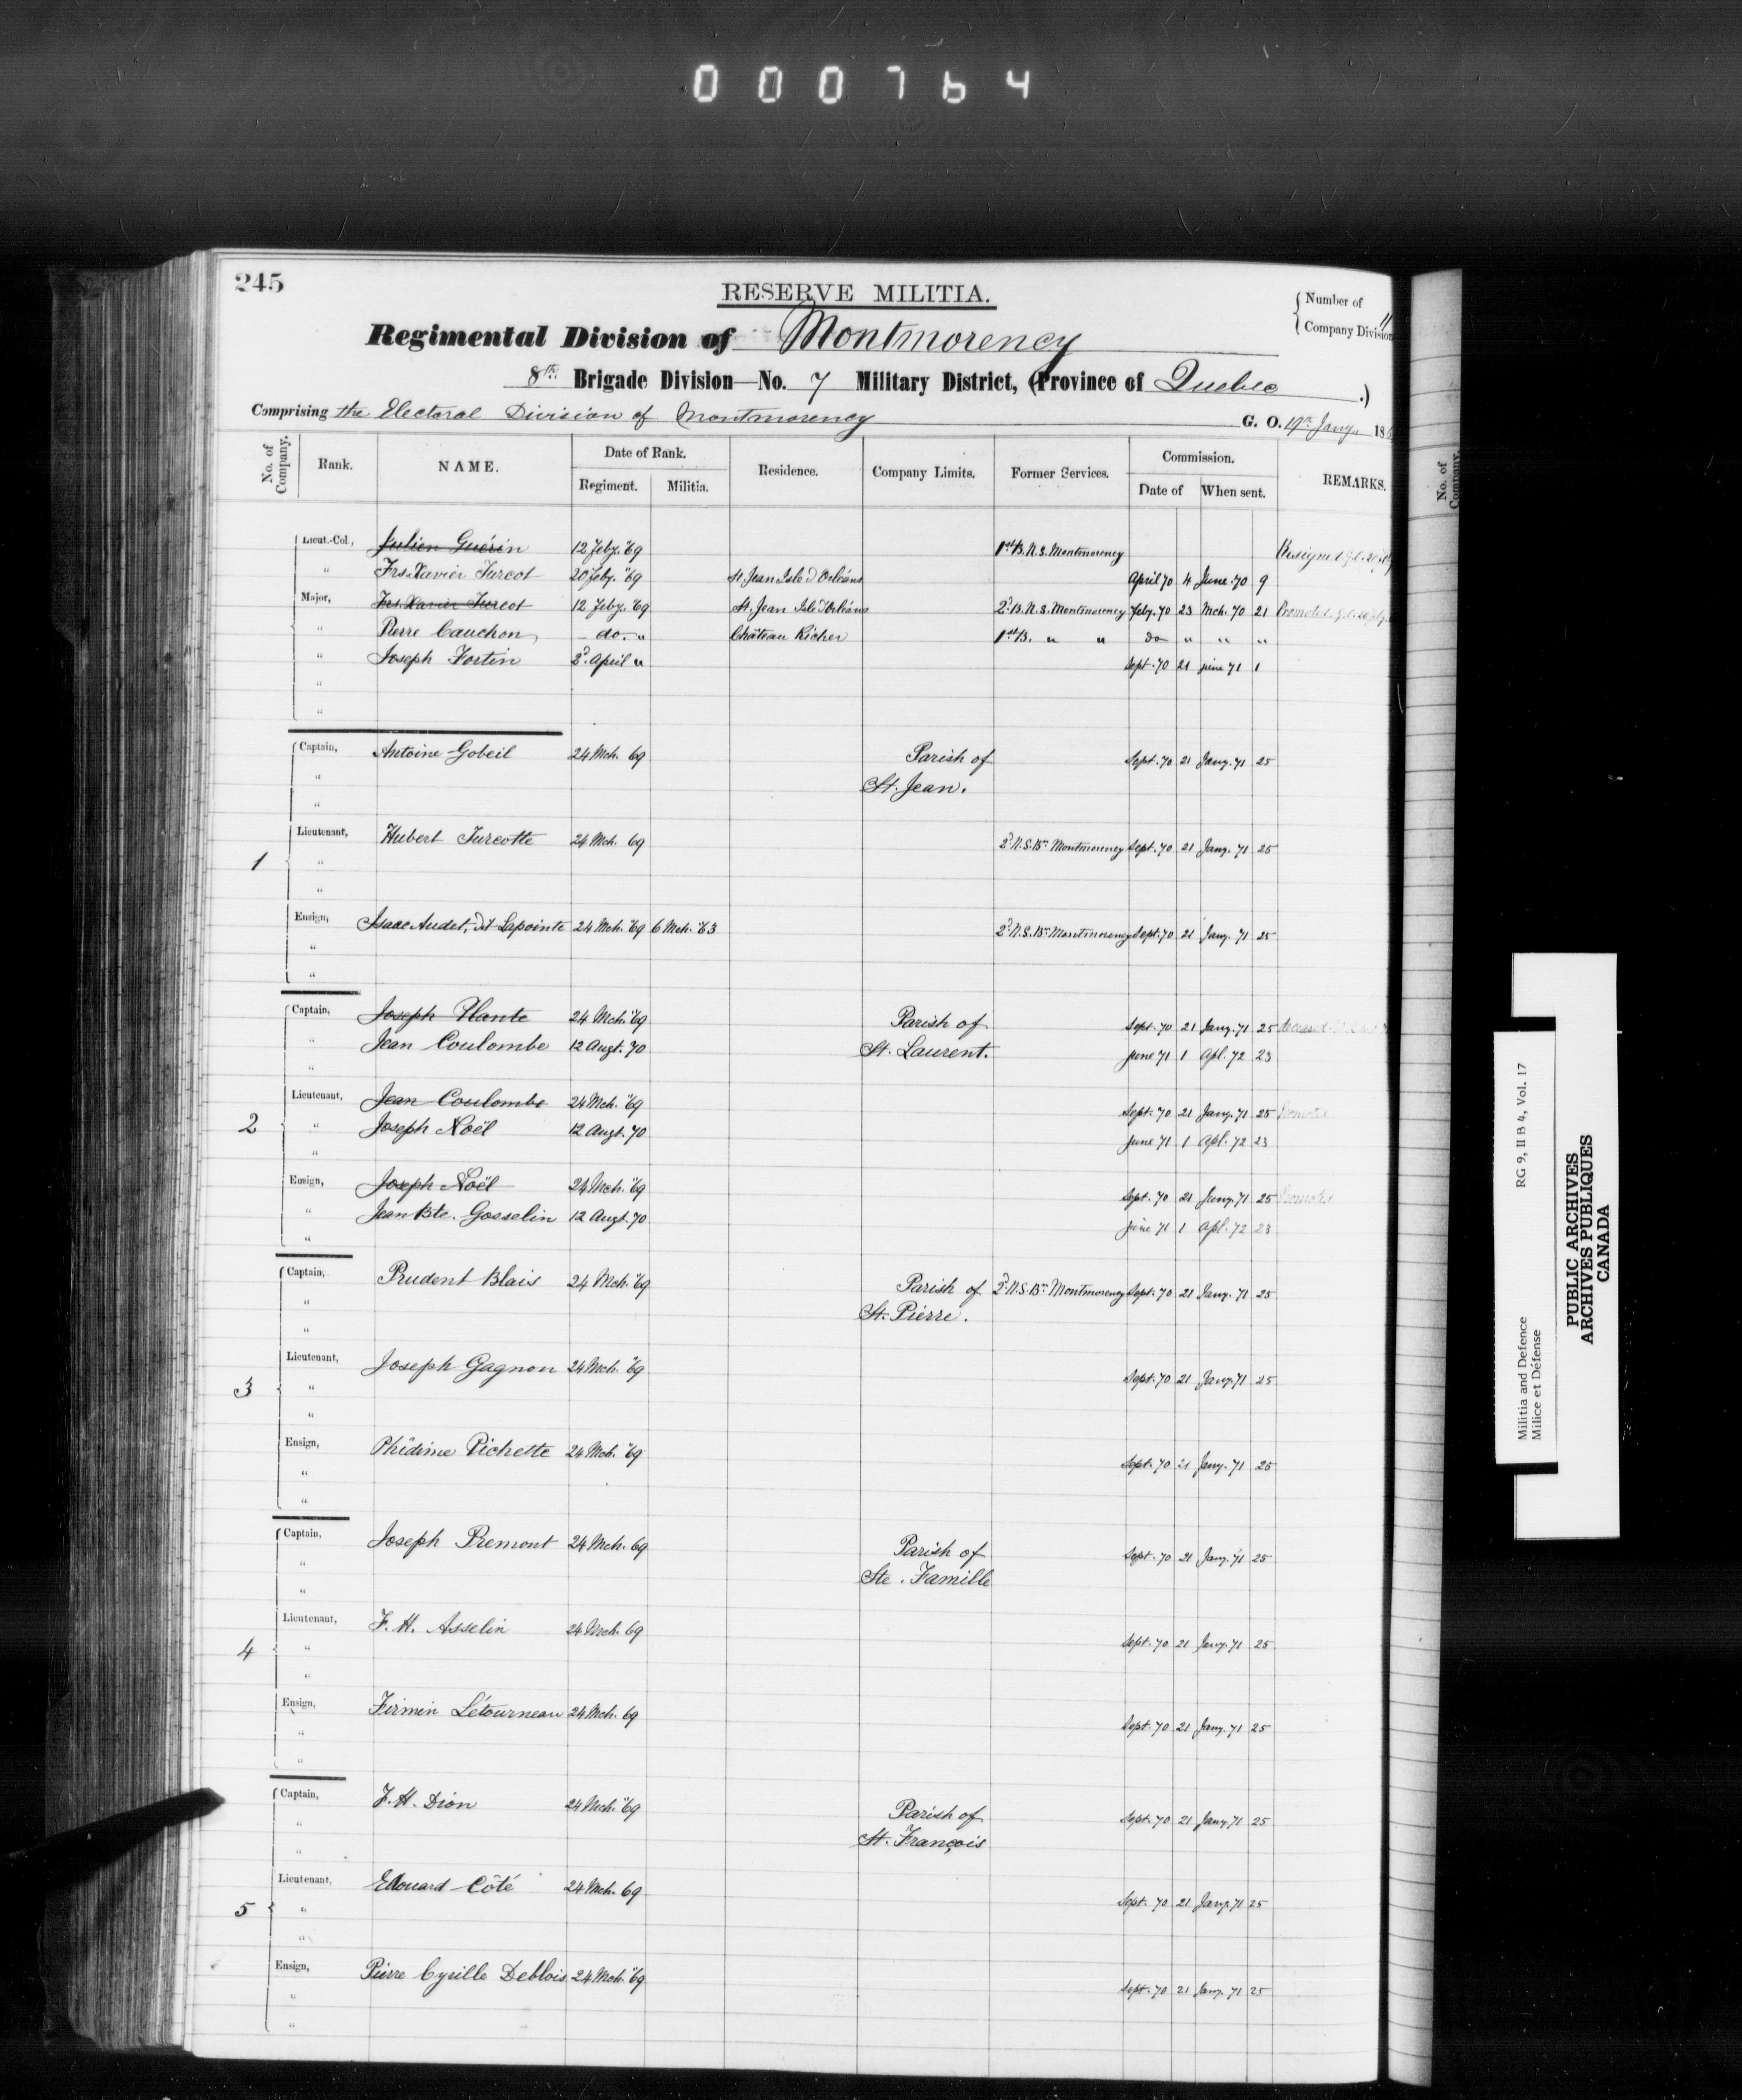 000764
245
RESERVE MILITIA.
Number of Company Division 11
Regimental Division of Montmorency
8th Brigade Division—No. 7 Military District, (Province of Quebec.)
Comprising the Electoral Division of Montmorency G. O. 19th Jany. 186
No. of Company. Rank. NAME. Date of Rank. Residence. Company Limits. Former Services. Commission. REMARKS. No. of Company.
Regiment. Militia. Date of When sent.
Lieut.-Col., Julien Guérin 12 Feby. "69 1st B. N. S. Montmorency Resigned G.O. 20
" Frs. Xavier Turcot 20 Feby. "69 St. Jean Isle d'Orléans April 70 4 June 70 9
Major, Frs. Xavier Turcot 12 Feby. "69 St. Jean Isle d'Orléans 2d B. N. S. Montmorency Feby. 70 23 Mch. 70 21 Promoted G.O. 20 Feby.
" Pierre Cauchon - do - " Château Richer 1st B. " " do " " "
" Joseph Fortin 2d April " Sept. 70 21 june 71 1
"
"
Captain, Antoine Gobeil 24 Mch. 69 Parish of Sept. 70 21 Jany. 71 25
" St. Jean.
"
Lieutenant, Hubert Turcotte 24 Mch. 69 2d N.S. Bn. Montmorency Sept. 70 21 Jany. 71 25
1 "
"
Ensign, Isaac Audet, dit Lapointe 24 Mch. "69 6 Mch. "63 2d N.S. Bn. Montmorency Sept. 70 21 Jany. 71 25
"
"
Captain, Joseph Plante 24 Mch. "69 Parish of Sept. 70 21 Jany. 71 25 deceased
" Jean Coulombe 12 Augt. 70 St. Laurent. june 71 1 Apl. 72 23
"
Lieutenant, Jean Coulombe 24 Mch. "69 Sept. 70 21 Jany. 71 25 Promoted
2 " Joseph Noël 12 Augt. 70 june 71 1 Apl. 72 23
"
Ensign, Joseph Noël 24 Mch. "69 Sept. 70 21 Jany. 71 25 Promoted
" Jean Bte. Gosselin 12 Augt. 70 june 71 1 Apl. 72 23
"
Captain, Prudent Blais 24 Mch. "69 Parish of 2d N.S. Bn. Montmorency Sept. 70 21 Jany. 71 25
" St. Pierre.
"
Lieutenant, Joseph Gagnon 24 Mch. "69 Sept. 70 21 Jany. 71 25
3 "
"
Ensign, Phidime Pichette 24 Mch. "69 Sept. 70 21 Jany. 71 25
"
"
Captain, Joseph Premont 24 Mch. 69 Parish of Sept. 70 21 Jany. 71 25
" Ste. Famille
"
Lieutenant, F. H. Asselin 24 Mch. 69 Sept. 70 21 Jany. 71 25
4 "
"
Ensign, Firmin Létourneau 24 Mch. 69 Sept. 70 21 Jany. 71 25
"
"
Captain, F. H. Dion 24 Mch. "69 Parish of Sept. 70 21 Jany. 71 25
" St. François
"
Lieutenant, Edouard Côté 24 Mch. 69 Sept. 70 21 Jany. 71 25
5 "
"
Ensign, Pierre Cyrille Deblois 24 Mch. "69 Sept. 70 21 Jany. 71 25
"
"
Militia and Defence RG 9, II B 4, Vol. 17
Milice et Défense
PUBLIC ARCHIVES
ARCHIVES PUBLIQUES
CANADA